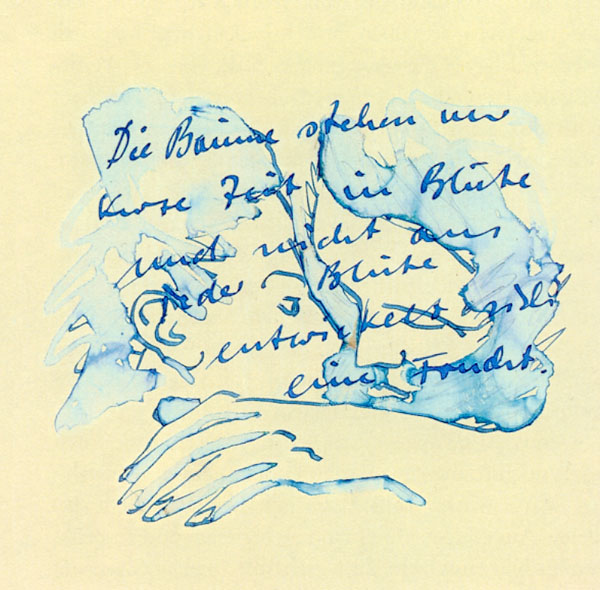 Die Bäume stehen nur
kurze Zeit in Blüte
und nicht aus
jeder Blüte
entwickelt sich
eine Frucht.